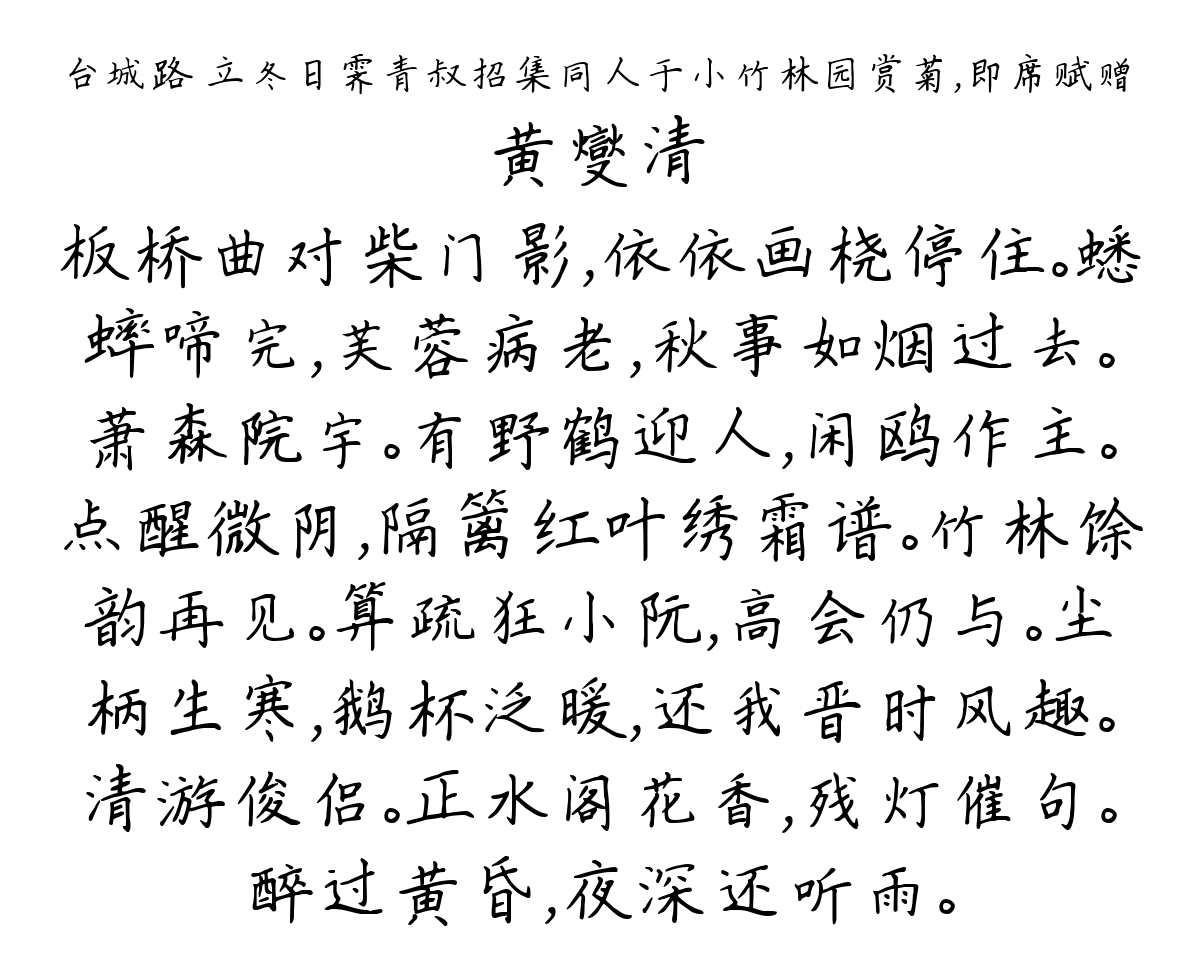 台城路 立冬日霁青叔招集同人于小竹林园赏菊,即席赋赠
黄燮清
板桥曲对柴门影,依依画桡停住。蟋
蟀啼完,芙蓉病老,秋事如烟过去。
萧森院宇。有野鹤迎人,闲鸥作主。
点醒微阴,隔篱红叶绣霜谱。竹林馀
韵再见。算疏狂小阮,高会仍与。尘
柄生寒,鹅杯泛暖,还我晋时风趣。
清游俊侣。正水阁花香,残灯催句。
醉过黄昏,夜深还听雨。